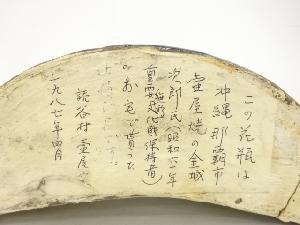 この花瓶は
沖縄那覇市
壷屋焼の金城
次郎氏(昭和六十年
重要無形文化財保持者)
のお宅で貰った
読谷村 壷屋
一九八七年四月